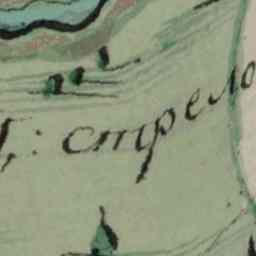 : стрело